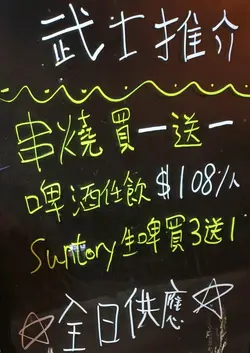 武士推介
串燒買一送一
啤酒任飲 $108/人
Suntory 生啤買3送1
☆全日供應☆